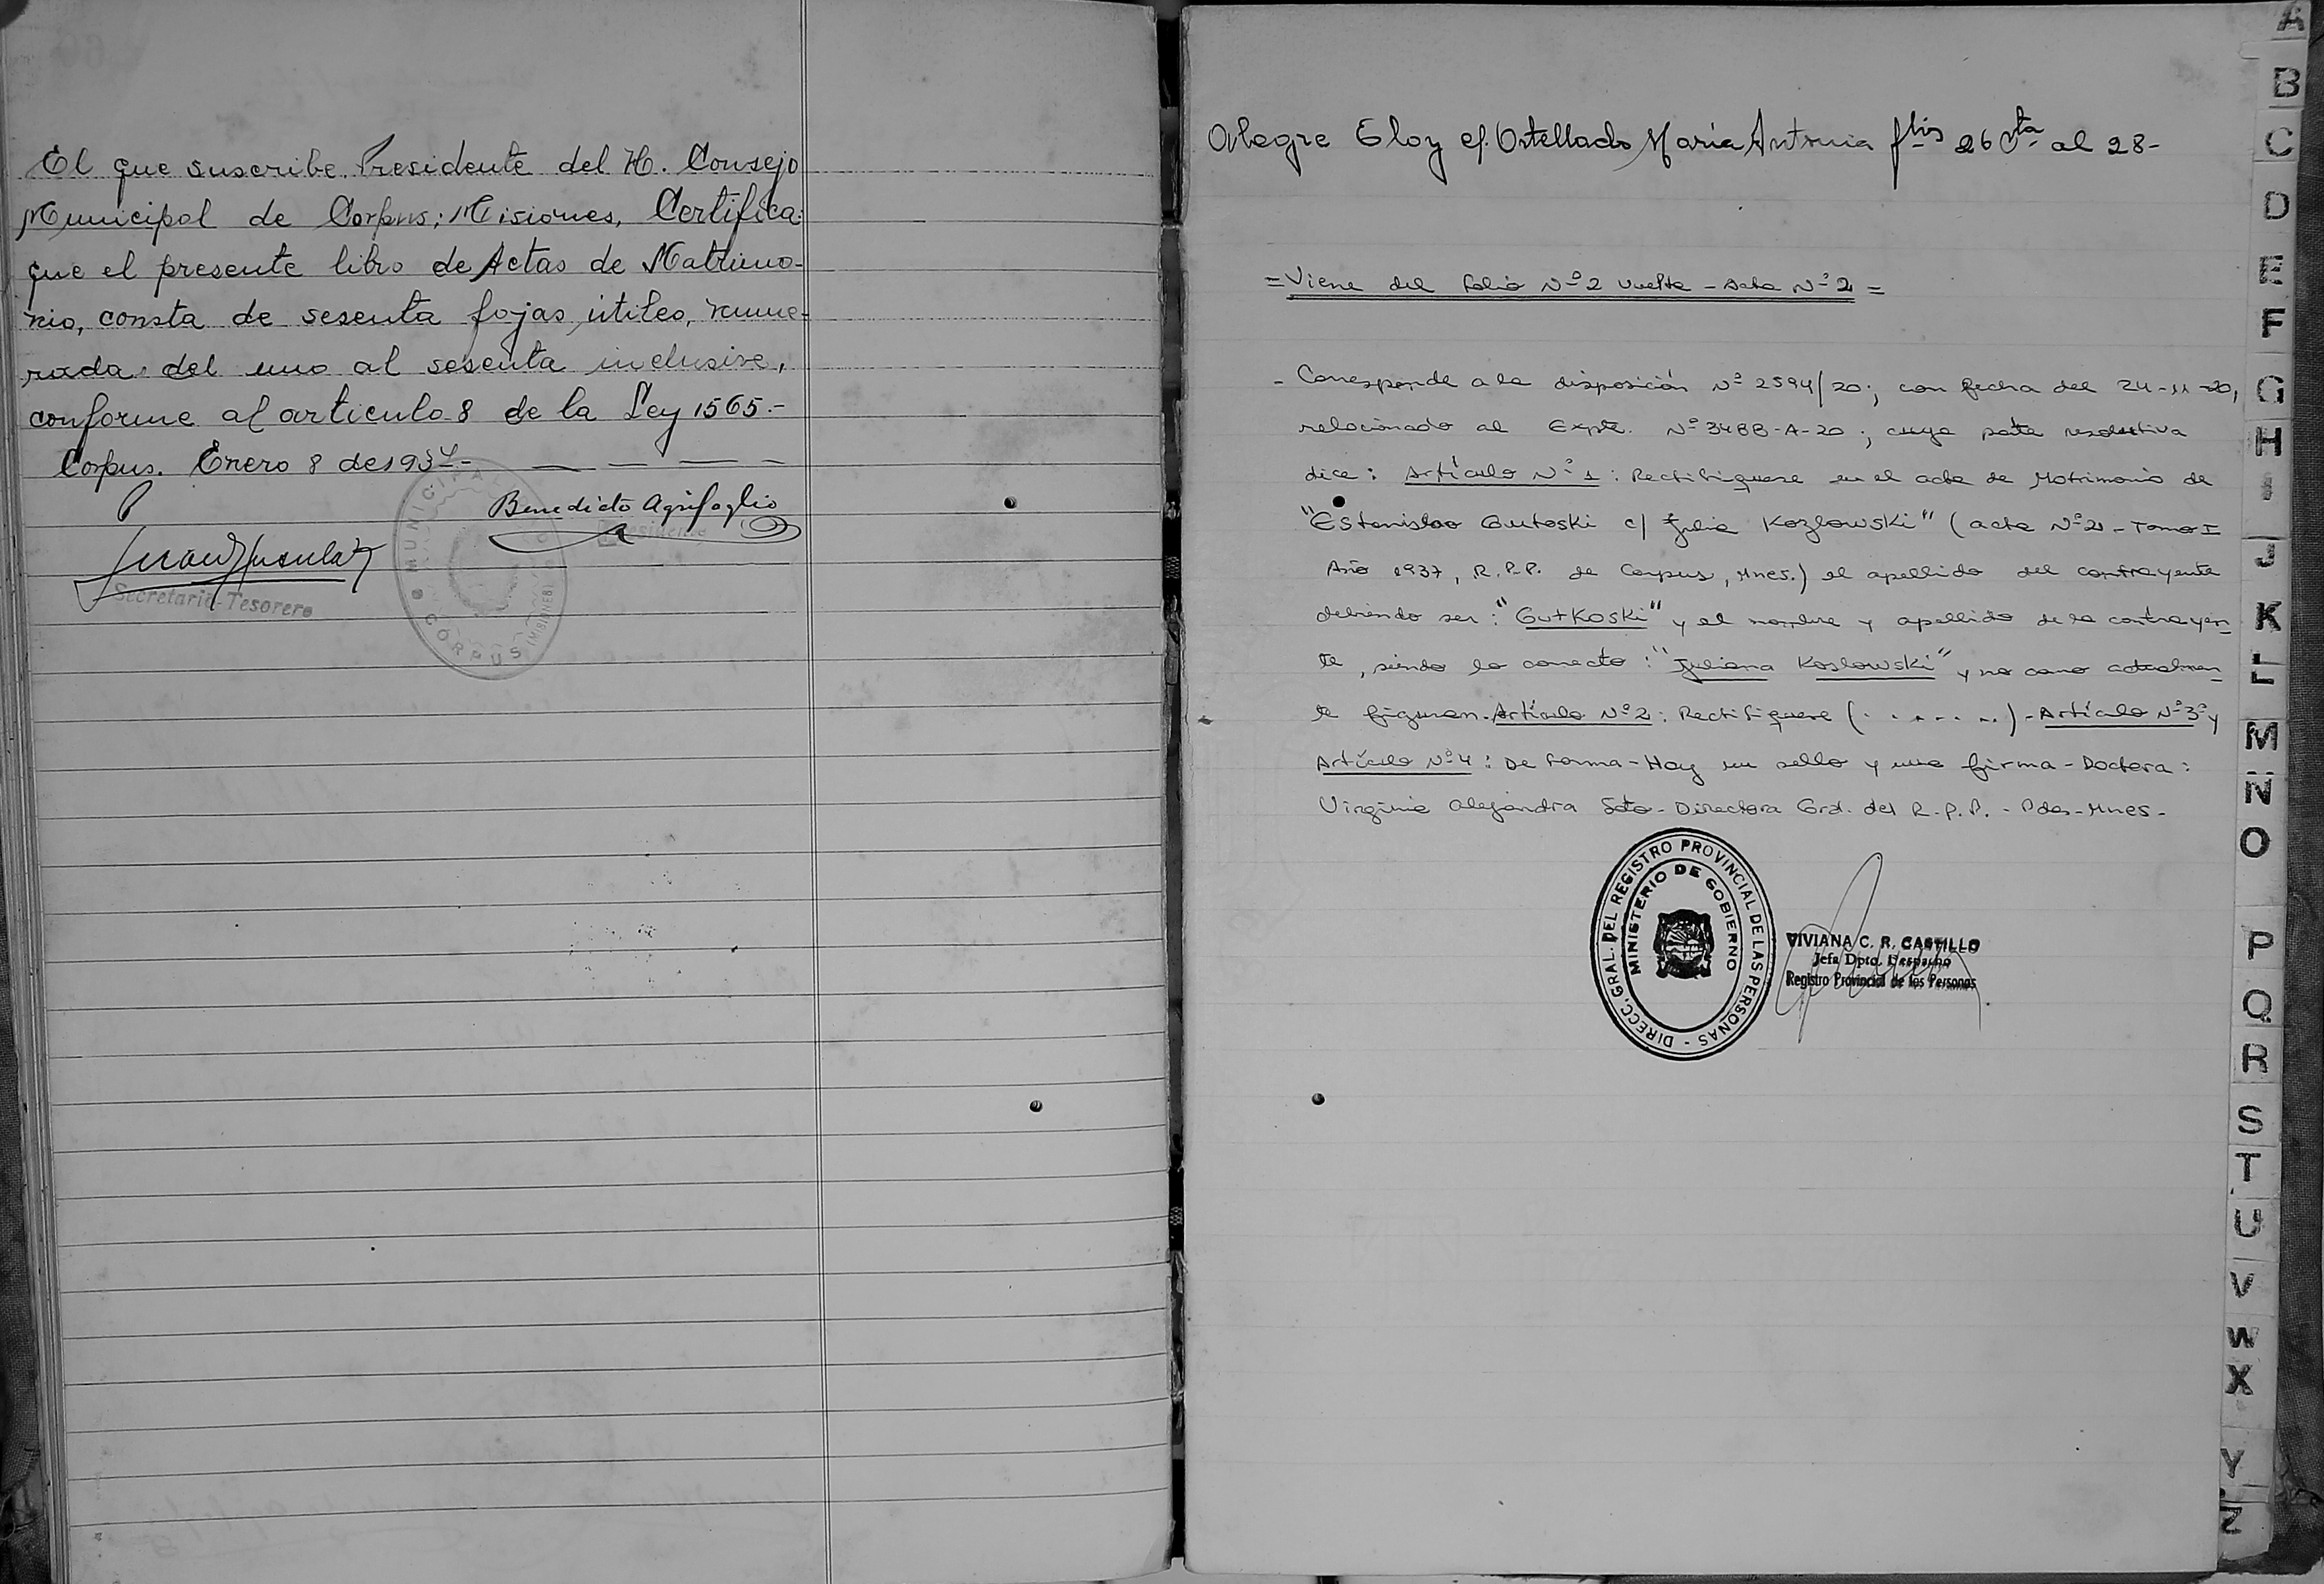 El que suscribe Presidente del H. Consejo
Municipal de Corpus; Misiones, Certifica:
que el presente libro de Actas de Matrimo-
nio, consta de sesenta fojas útiles, nume-
rada del uno al sesenta inclusive,
conforme al articulo 8 de la Ley 1565.-
Corpus. Enero 8 de 1937-
Benedicto Agrifoglio
Presidente
Secretario-Tesorero
MUNICIPAL
CORPUS (MISIONES)
Alegre Eloy c/. Ortellado María Antonia flios 26 Vta al 28-
= Viene del folio Nº 2 vuelta - Acta Nº 2 =
- Corresponde a la disposición Nº 2594/20; con fecha del 24-11-20,
relacionado al Expte. Nº 3488-A-20; cuya parte resolutiva
dice: Artículo Nº 1: Rectifiquese en el acta de Matrimonio de
"Estanislao Gutoski c/ Julia Kozlowski" (acta Nº 2 - Tomo I
Año 1937, R.P.P. de Corpus, Mnes.) el apellido del contrayente
debiendo ser: "Gutkoski" y el nombre y apellido de la contrayen
te, siendo lo correcto: "Juliana Koslowski" y no como actualmen
te figuran. Artículo Nº 2: Rectifiquese (. . . . . .) - Artículo Nº 3º y
Artículo Nº 4: De forma - Hay un sello y una firma - Doctora:
Virginia Alejandra Soto - Directora Gral. del R.P.P. - Pdas - Mnes -
DIRECC. GRAL. DEL REGISTRO PROVINCIAL DE LAS PERSONAS -
MINISTERIO DE GOBIERNO
VIVIANA C. R. CASTILLO
Jefa Dpto. Despacho
Registro Provincial de las Personas
A
B
C
D
E
F
G
H
I
J
K
L
M
N
O
P
Q
R
S
T
U
V
W
X
Y
Z